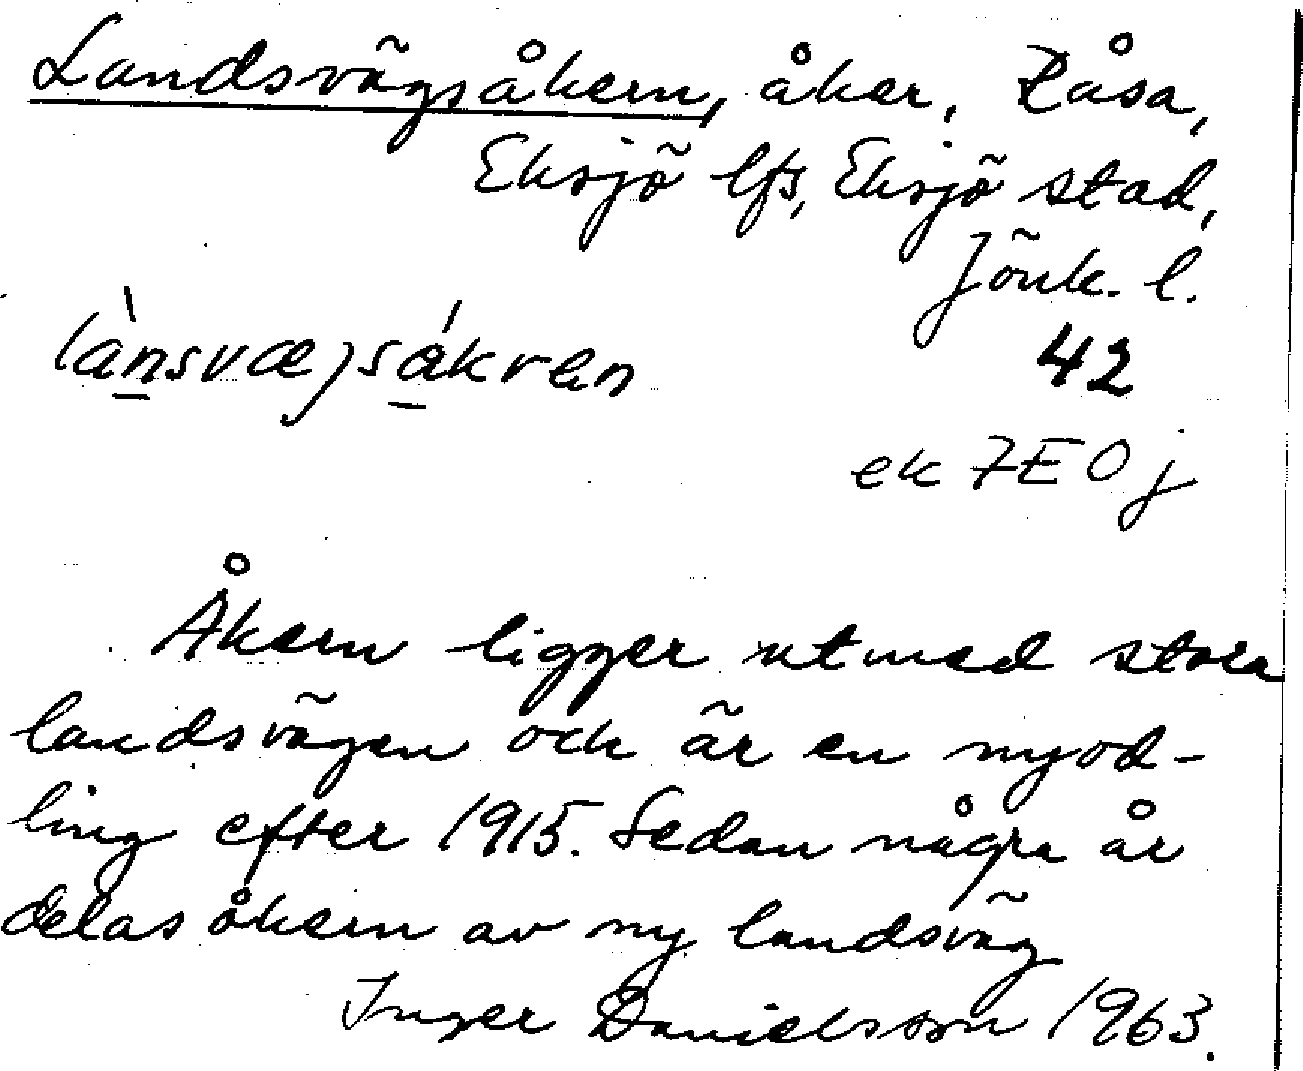 Landsvägsåkern, åker, Råsa,
Eksjö lfs, Eksjö stad,
Jönk. l.
lànsvæjsákren
42
ek 7E0j
Åkern ligger utmed stora
landsvägen och är en nyod-
ling efter 1915. Sedan några år
delas åkern av ny landsväg
Inger Danielsson 1963.